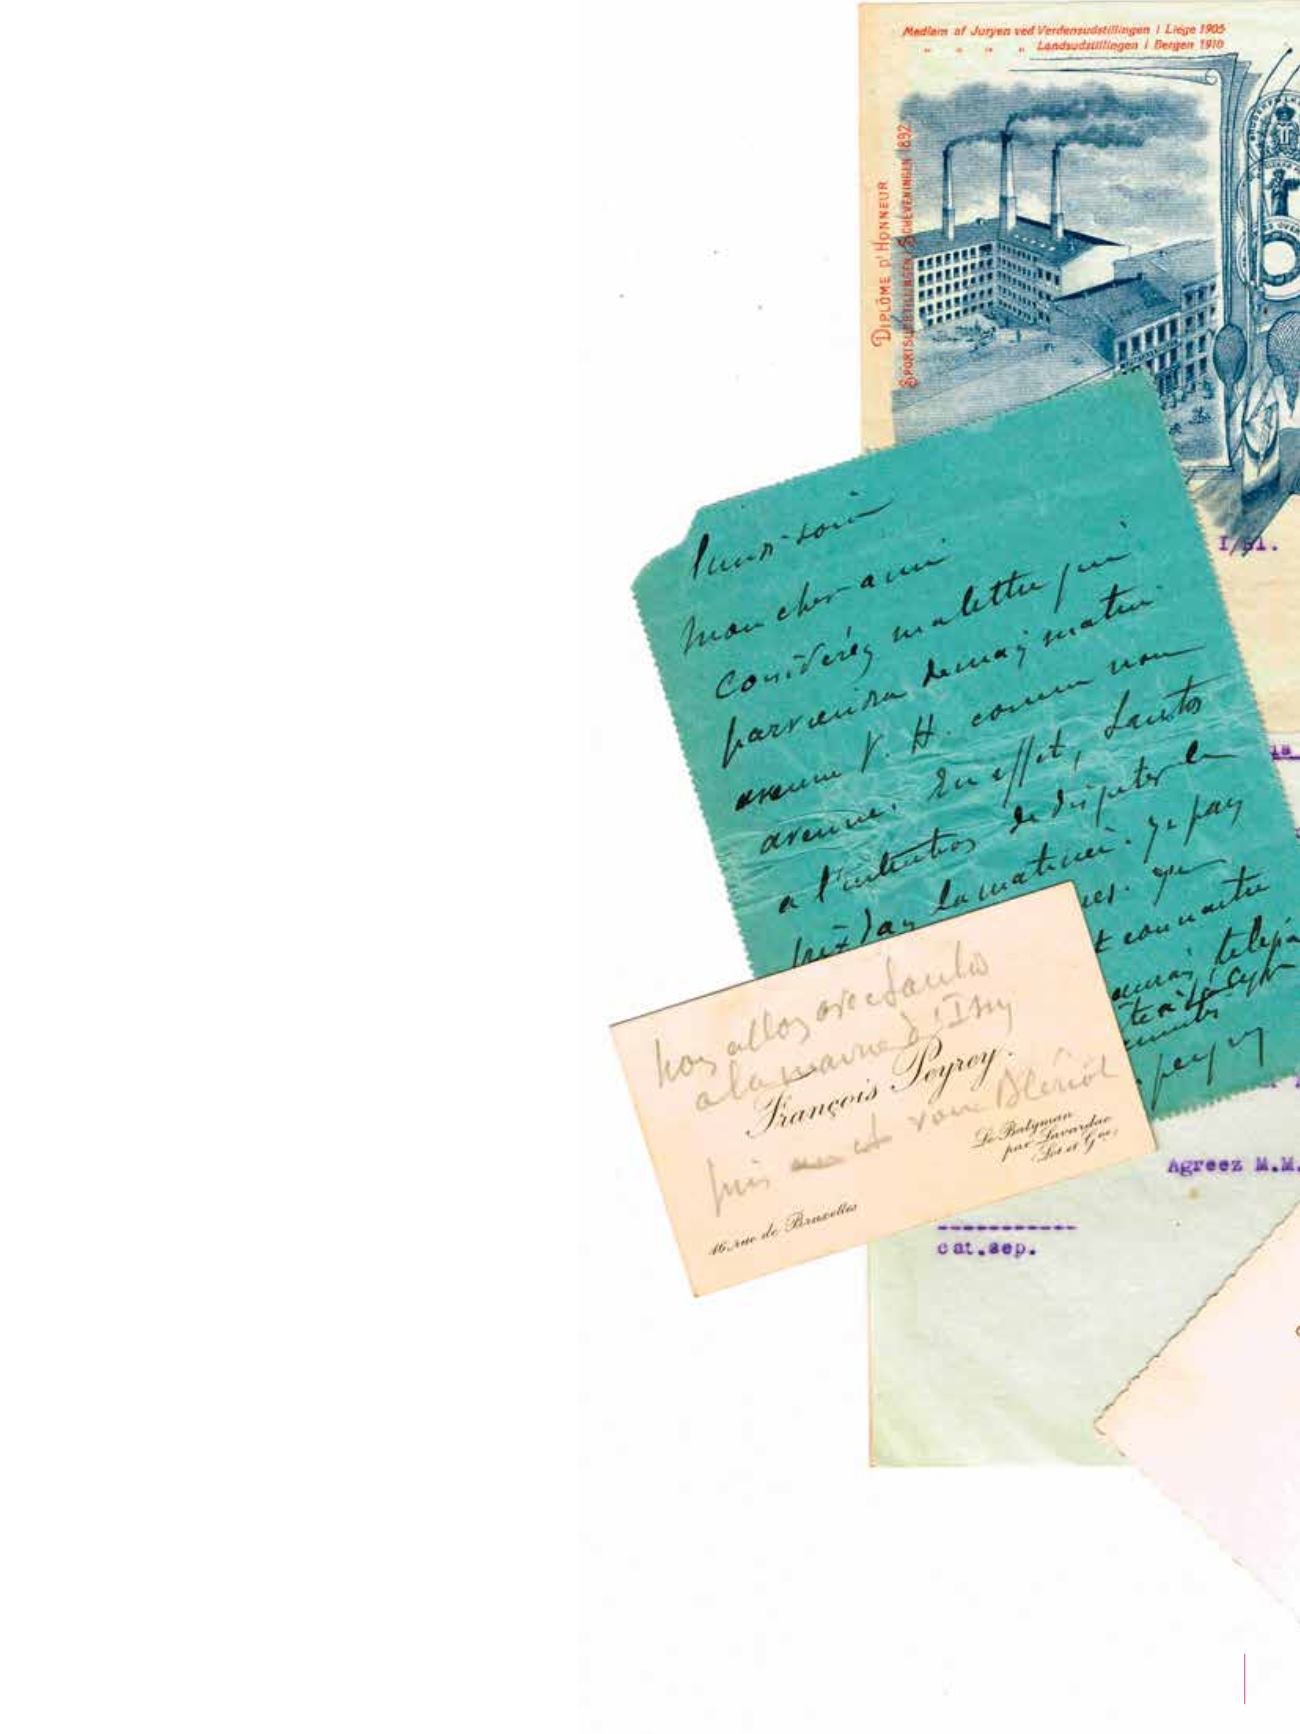 Medlem af Juryen ved Verdensudstillingen i Liége 1905
" " " " Landsudstillingen i Bergen 1910
DIPLÔME D'HONNEUR
SPORTSUDSTILLINGEN SCHEVENINGEN 1892
lundi soir
mon cher ami
Considérez ma lettre qui
parviendra demain matin
avenue V. H. comme non
avenue. En effet, Santos
a l'intention de disputer le
prix dans la matinée. Je
que
t connaitre
aurai
peyrey
nous allons avec Santos
a la mairie d'Issy
François Peyrey.
puis vous Blériot
Le Batyman
par Lavardac
(Lot et Gne)
16, rue de Bruxelles
Agreez M.M.
-----------
cat.sep.